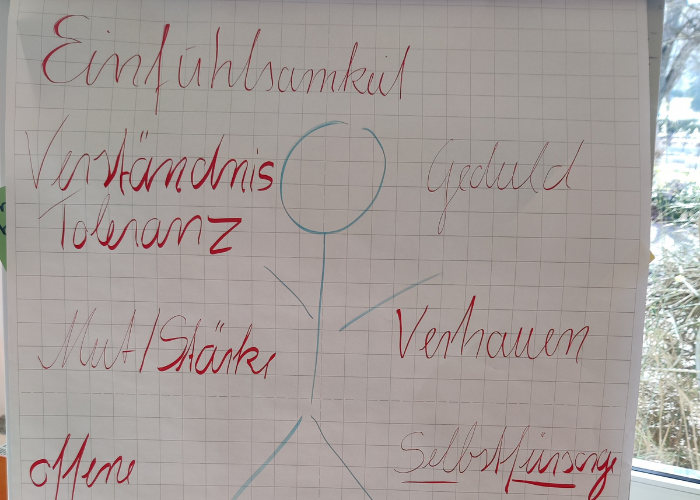 Einfühlsamkeit
Verständnis
Geduld
Toleranz
Mut/Stärke
Verhauen
offene
Selbstfürsorge